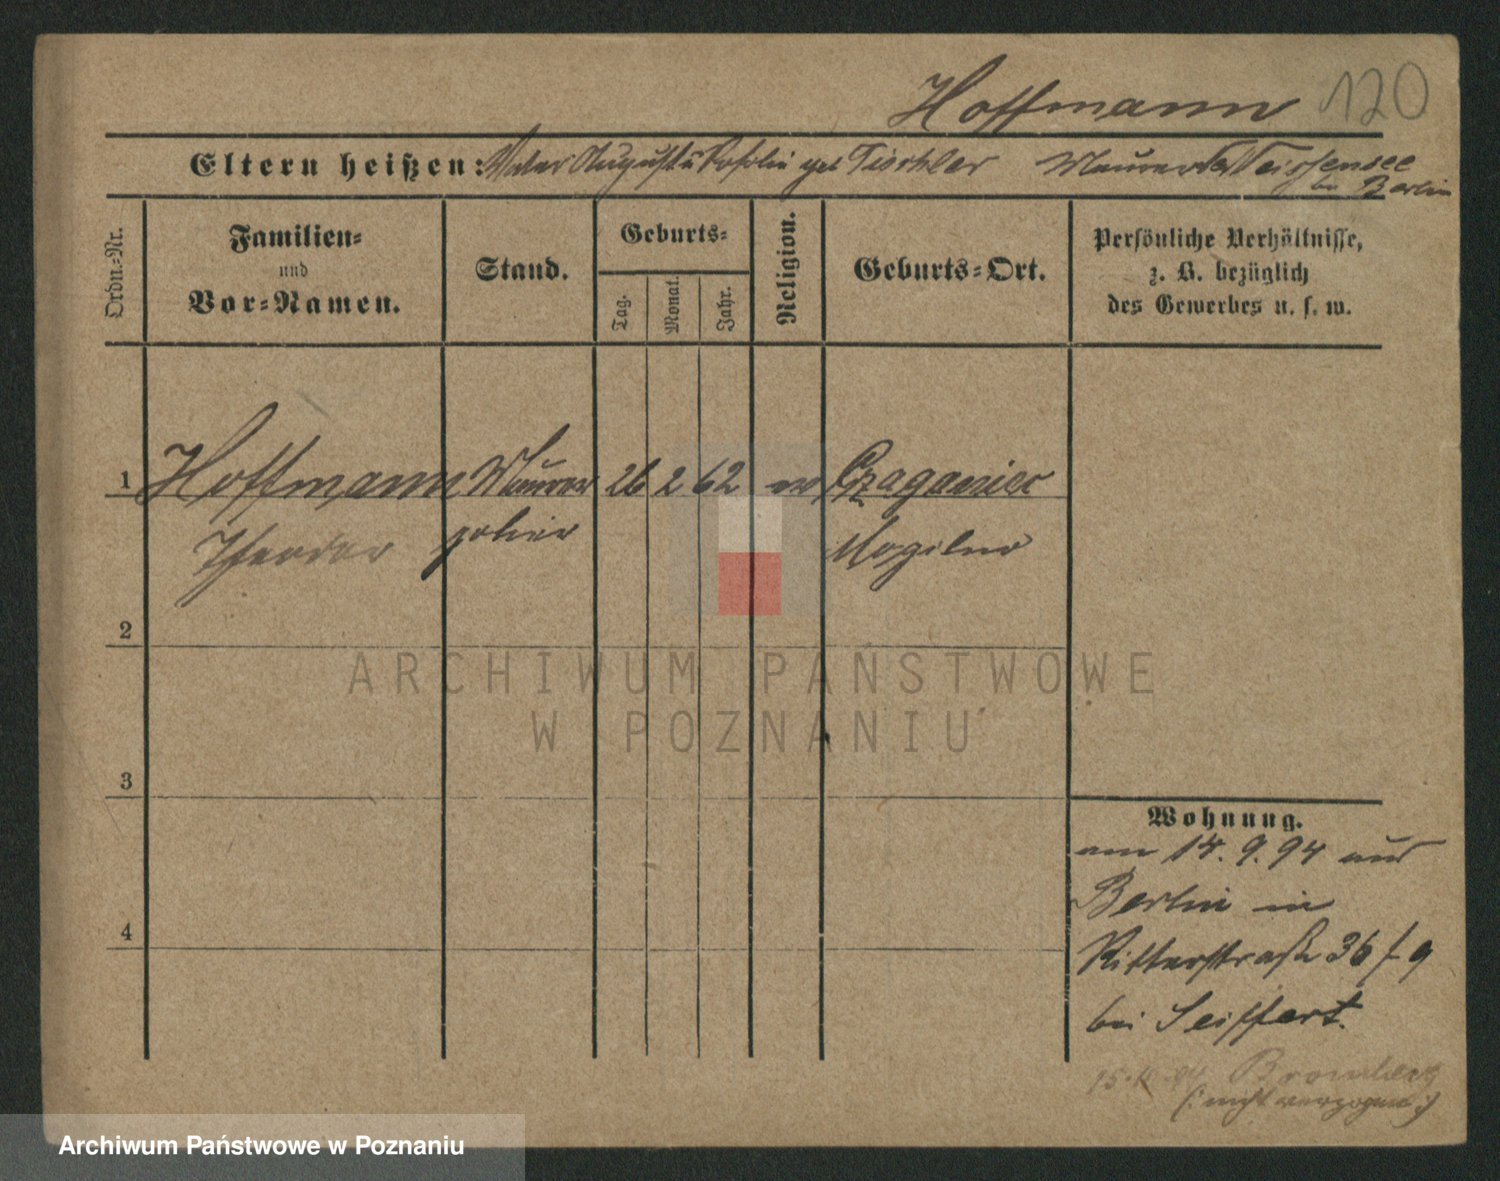 Hoffmann 120
Eltern heißen: Vater August u Rosalie geb Tischler Maurer Weissensee
bei Berlin
Ordn.-Nr.
Familien-
und
Vor-Namen.
Stand.
Geburts-
Tag.
Monat.
Jahr.
Religion.
Geburts-Ort.
Persönliche Verhältnisse,
z. B. bezüglich
des Gewerbes u. s. w.
1 Hoffmann Maurer 26 2 62 ev
Theodor polier Mogilno
2
3
4
Wohnung.
am 14. 9. 94 aus
Berlin in
Ritterstraße 36
bei Seiffert.
Bromberg
(: nicht verzogen :)
ARCHIWUM PAŃSTWOWE
W POZNANIU
Archiwum Państwowe w Poznaniu